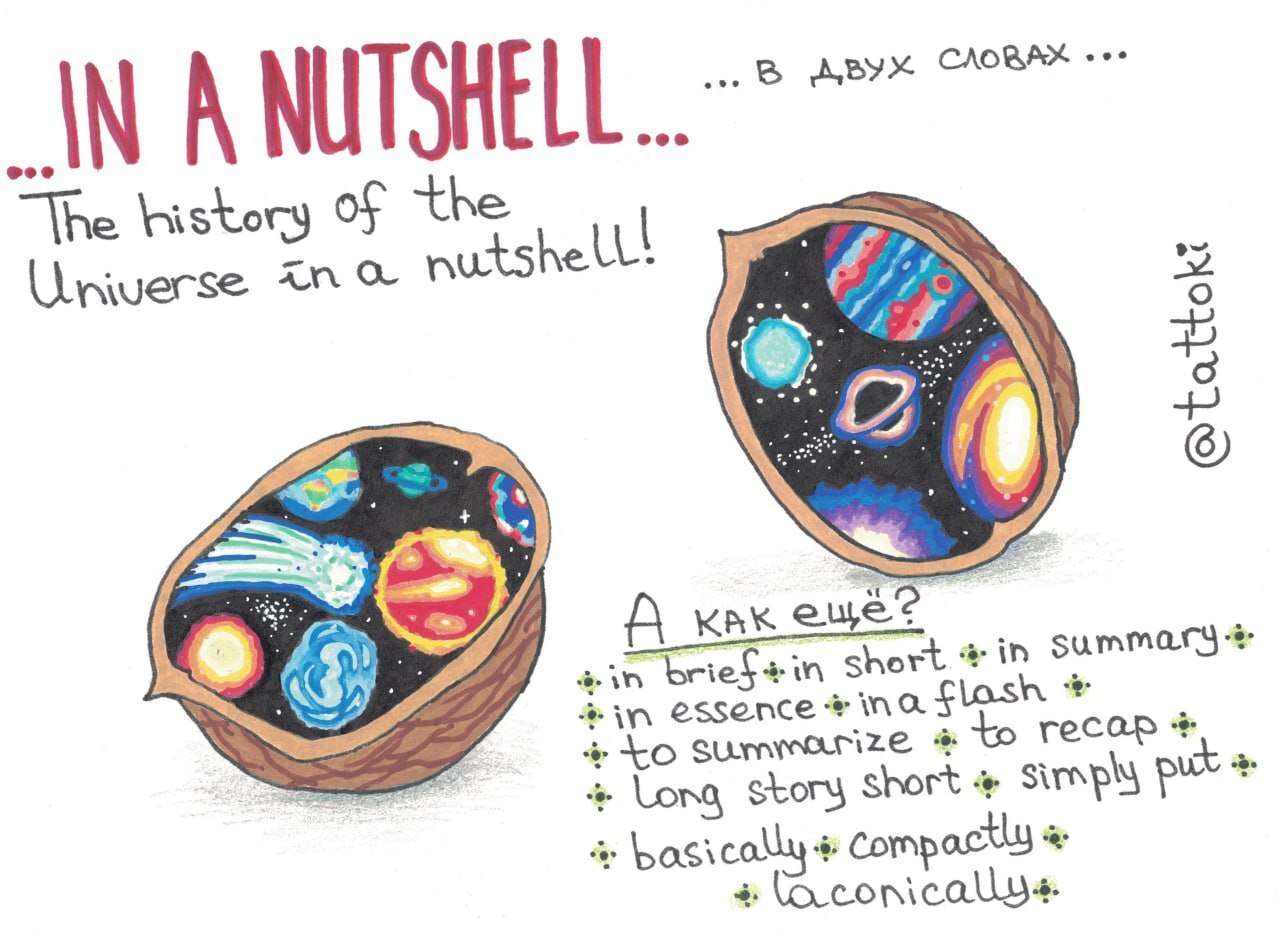 ...IN A NUTSHELL...
... В ДВУХ СЛОВАХ ...
The history of the
Universe in a nutshell!
@tattoki
А КАК ЕЩЁ?
in brief in short in summary
in essence in a flash
to summarize to recap
long story short simply put
basically compactly
laconically